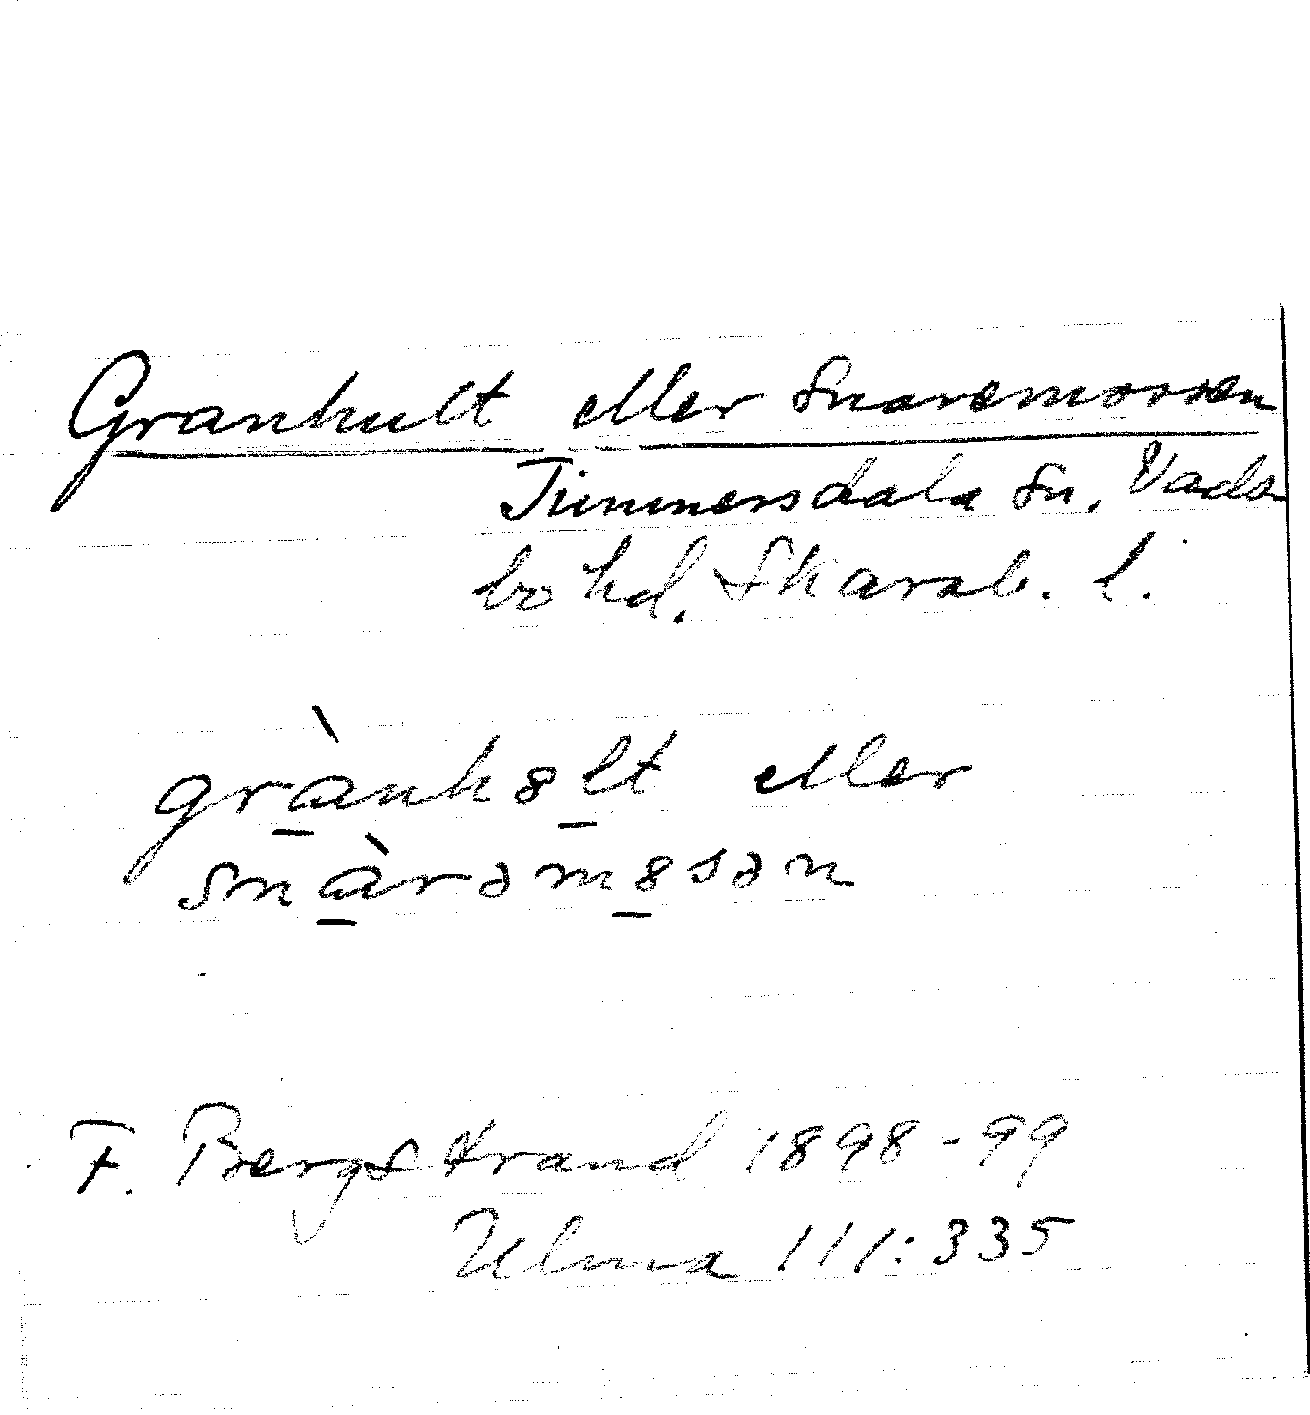 Granhult eller Snaremossen
Timmersdala sn, Vads
bo hd. Skarab. l.
grànhȣlt eller
snàrəmȣsən
F. Bergstrand 1898-99
Ulma 111:335